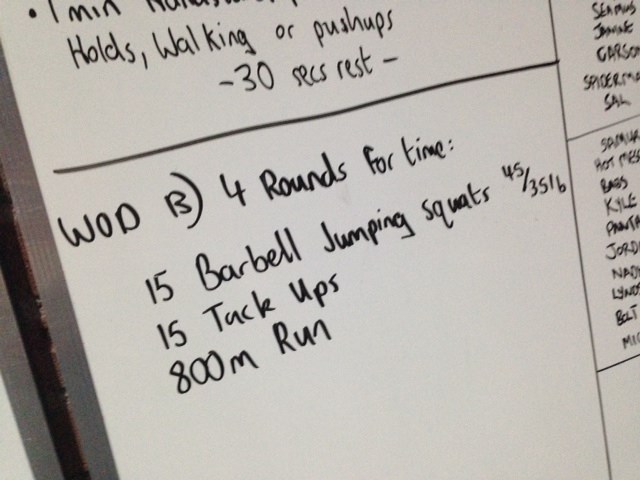 • 1 min
Holds, Walking or pushups
- 30 secs rest -
WOD B) 4 Rounds for time:
15 Barbell Jumping squats 45/35lb
15 Tuck Ups
800m Run
JANINE
CARSON
SPIDERMA
SAL
SAMUR
HOT MES
BABS
KYLE
PANTA
JORD
NAD
LYND
BOLT
MIC